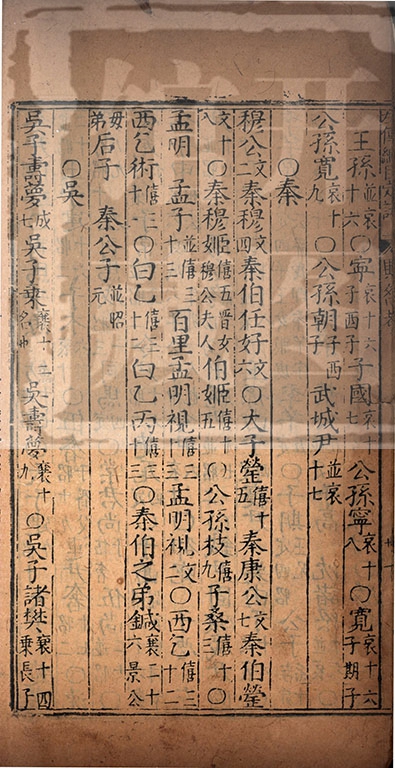 王孫並哀十六〇寧哀十六子西子子國哀十七公孫寧哀十八〇寬哀十六子期子
公孫寬哀十九〇公孫朝子西子武城尹並哀十七
〇秦
穆公文二秦穆文四秦伯任好文六〇大子罃僖十五秦康公文七秦伯罃
文十八〇秦穆姬僖五晉女穆公夫人伯姬僖十五〇公孫枝僖九子桑僖十三〇
孟明孟子並僖三十三百里孟明視僖三十三孟明視文二〇西乞僖三十二
西乞術僖三十三〇白乙僖三十二白乙丙僖三十三〇秦伯之弟鍼襄二十六景公
母弟后子秦公子並昭元
〇吳
吳子壽夢成七吳子乘襄十二名壽夢襄十九〇吳子諸樊襄十四乘長子